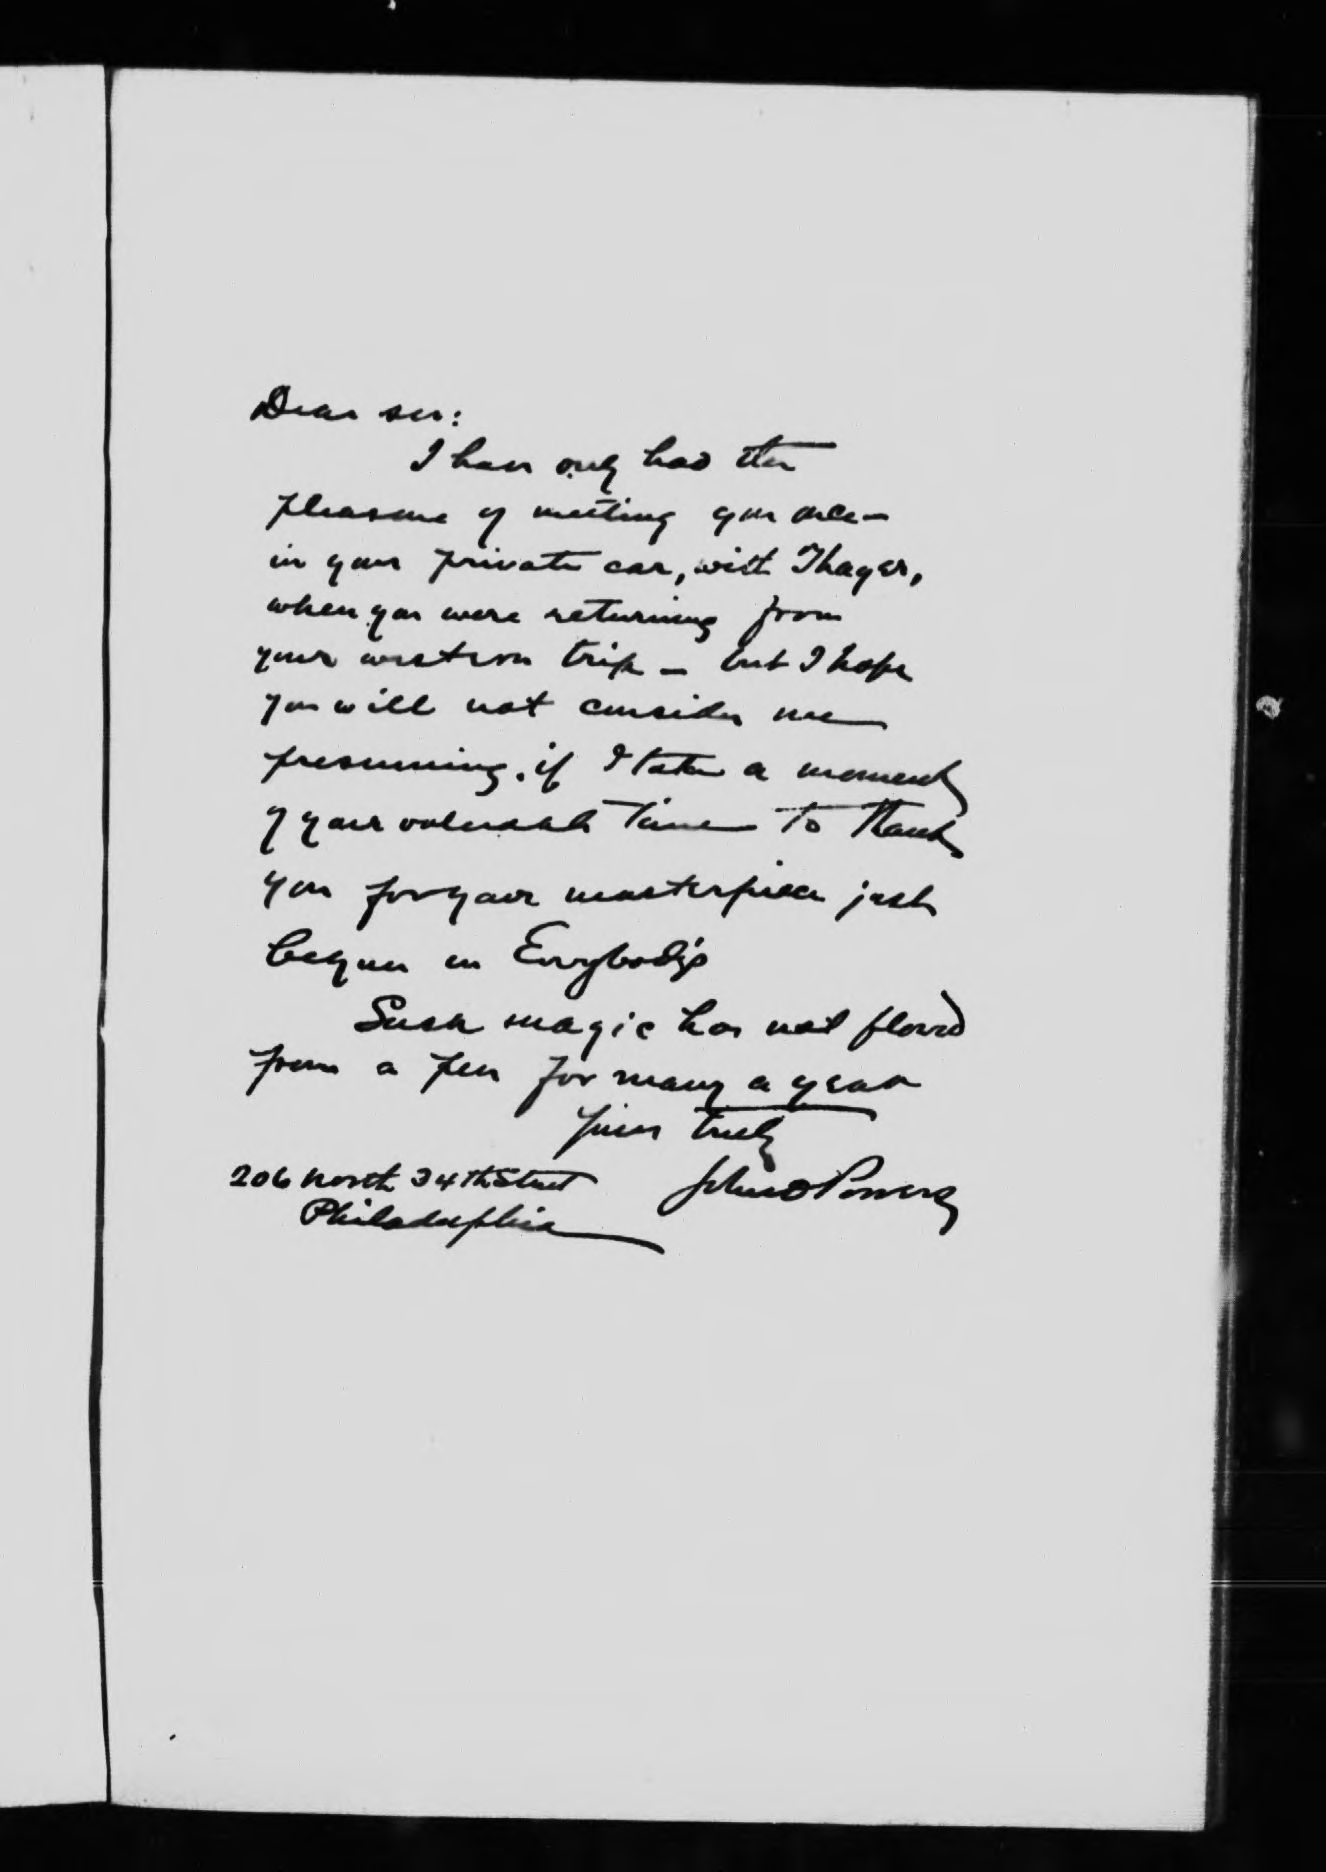 Dear sir:
I have only had the
pleasure of meeting you once—
in your private car, with Thayer,
when you were returning from
your western trip — but I hope
you will not consider me
presuming, if I take a moment
of your valuable time to thank
you for your masterpiece just
begun in Everybody's
Such magic has not flowed
from a pen for many a year
Yours truly
206 North 34th Street John O Powers
Philadelphia